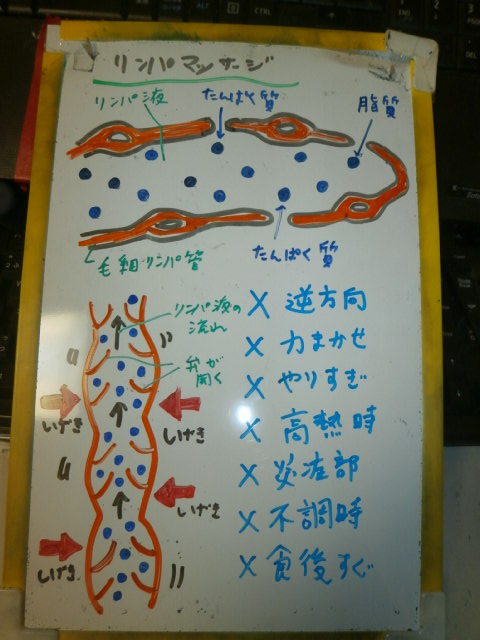 リンパマッサージ
リンパ液
たんぱく質
脂質
たんぱく質
毛細リンパ管
リンパ液の
流れ
弁が
開く
しげき
しげき
しげき
しげき
× 逆方向
× 力まかせ
× やりすぎ
× 高熱時
× 炎症部
× 不調時
× 食後すぐ